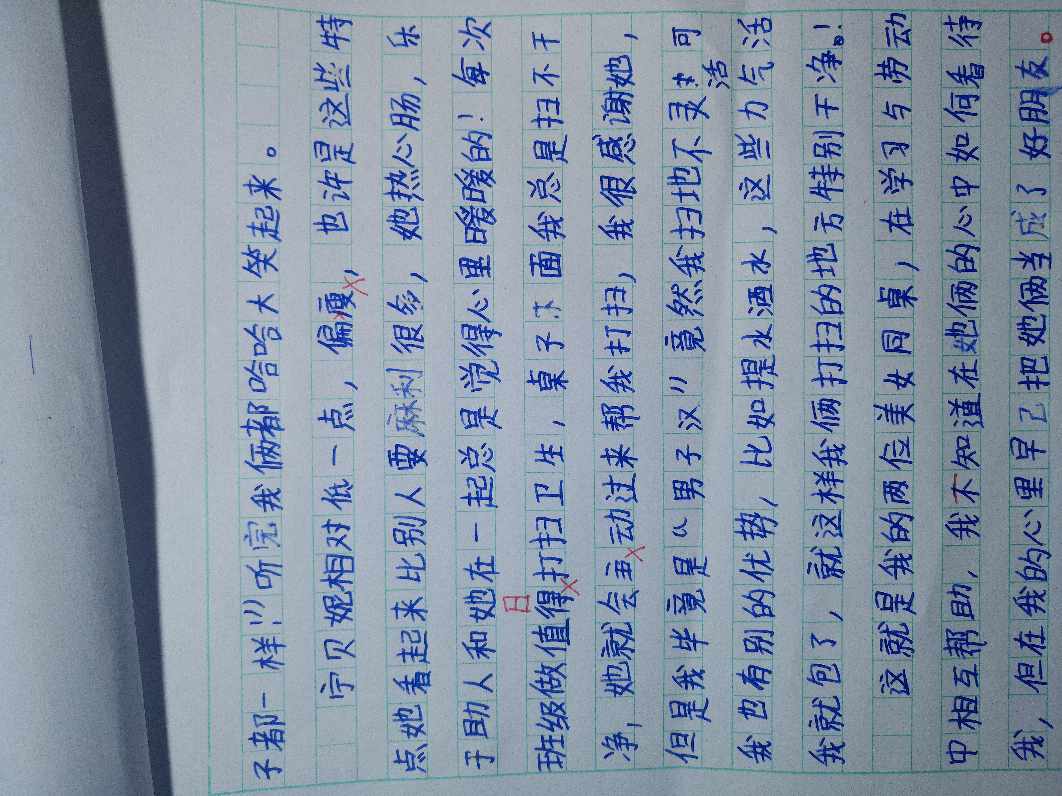 子都一样!"听完我俩都哈哈大笑起来。
宁贝妮相对低一点，偏瘦，也许是这些特
点她看起来比别人要麻利很多，她热心肠，乐
于助人和她在一起总是觉得心里暖暖的！每次
日
班级做值得打扫卫生，桌子下面我总是扫不干
净，她就会主动过来帮我打扫，我很感谢她，
但是我毕竟是"男子汉"竟然我扫地不灵活可
我也有别的优势，比如提水洒水，这些力气活
我就包了，就这样我俩打扫的地方特别干净。!
这就是我的两位美女同桌，在学习与劳动
中相互帮助，我不知道在她俩的心中如何看待
我，但在我的心里早已把她俩当成了好朋友。